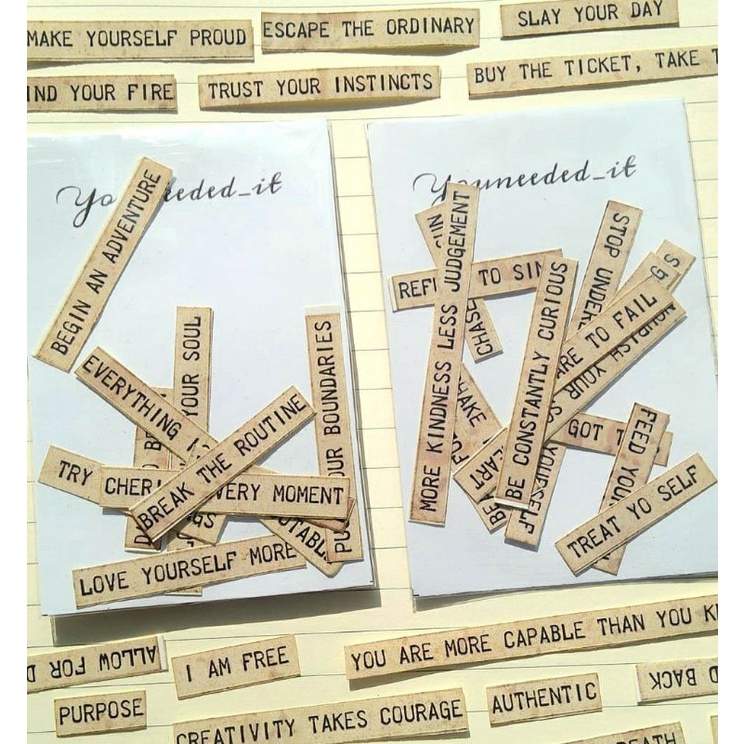 MAKE YOURSELF PROUD
ESCAPE THE ORDINARY
SLAY YOUR DAY
IND YOUR FIRE
TRUST YOUR INSTINCTS
BUY THE TICKET, TAKE T
Youneeded_it
BEGIN AN ADVENTURE
YOUR SOUL
EVERYTHING
UR BOUNDARIES
BREAK THE ROUTINE
TRY
VERY MOMENT
LOVE YOURSELF MORE
Youneeded_it
MORE KINDNESS LESS JUDGEMENT
TO SIN
STOP UNDER
BE CONSTANTLY CURIOUS
RE TO FAIL
YOUR
GOT
YOURSELF
FEED YOU
TREAT YO SELF
ALLOW FOR D
I AM FREE
YOU ARE MORE CAPABLE THAN YOU K
D BACK
PURPOSE
CREATIVITY TAKES COURAGE
AUTHENTIC